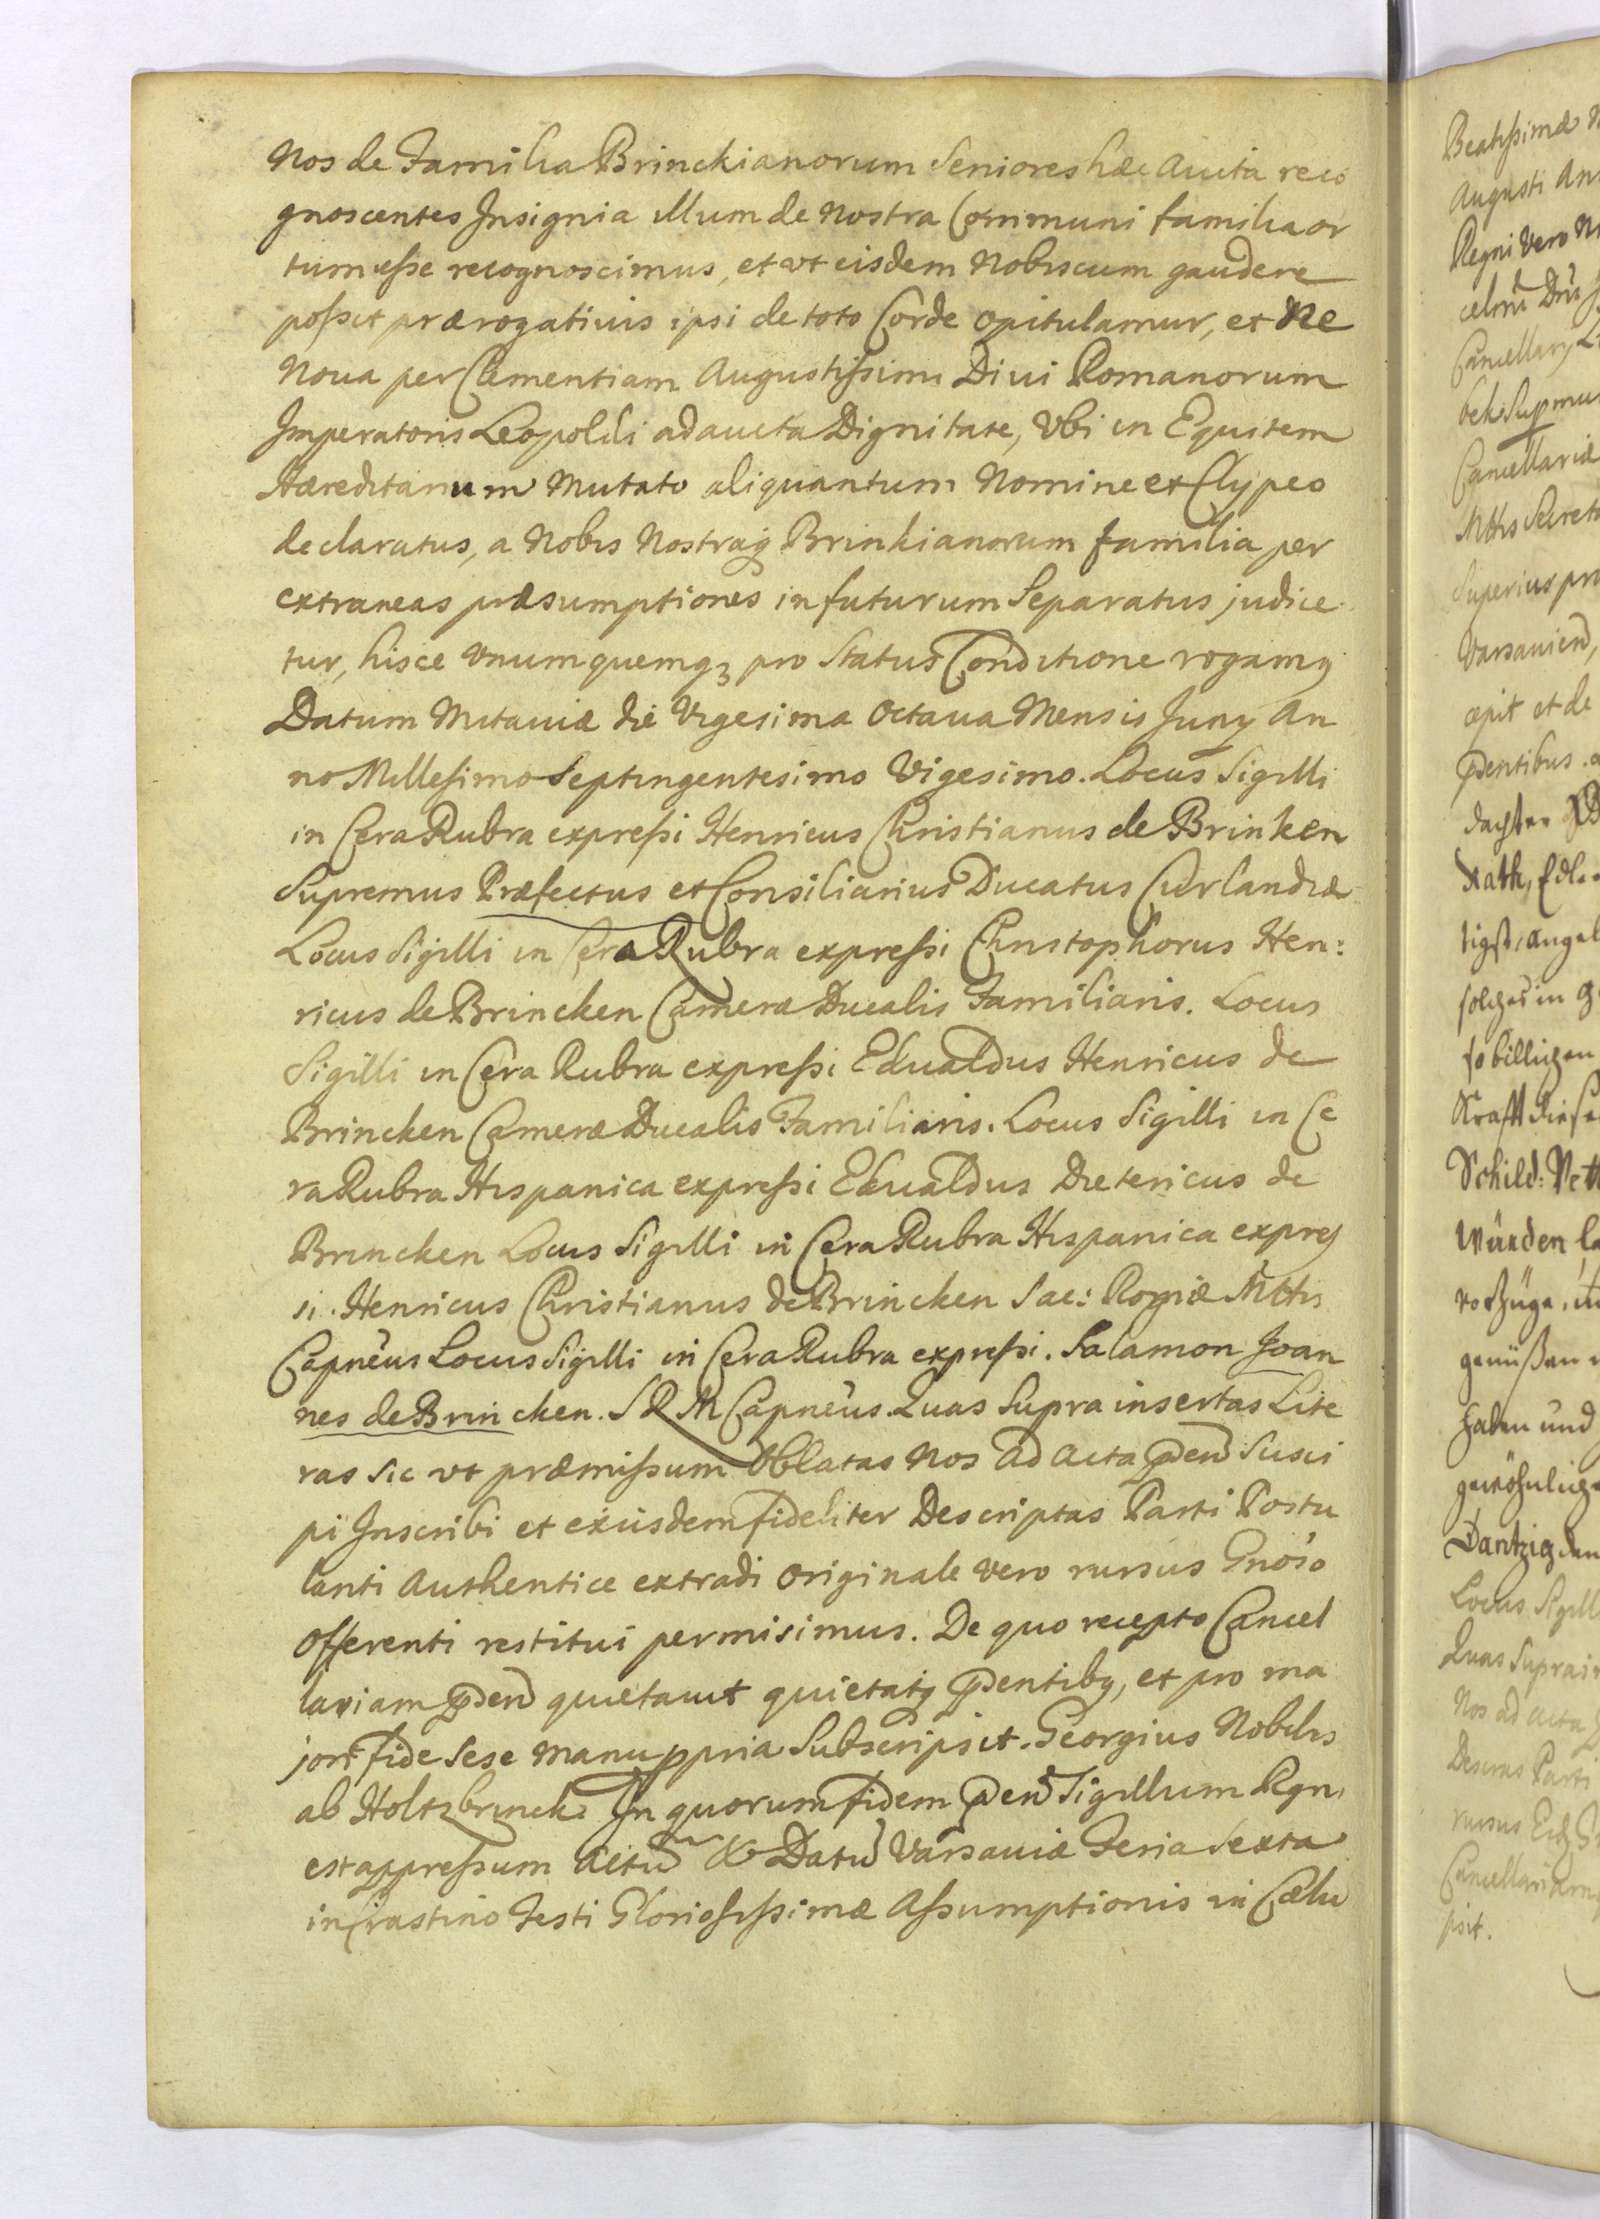 Nos de Familia Brinckianorum Seniores hæc Avita reco
gnoscentes Insignia illum de Nostra Communi familia or
tum esse recognoscimus, et vt eisdem Nobiscum gaudere
possit prærogativis ipsi de toto Corde opitulamur, et Ne
Noua per Clementiam Augustissimi Diui Romanorum
Imperatoris Leopoldi adaucta Dignitate, Vbi in Equitem
Hæreditarium Mutato aliquantum Nomine et Clypeo
declaratus, a Nobis Nostraq Brinkianorum familia per
extraneas præsumptiones in futurum Separatus judice
tur, hisce Vnumquemqз pro Status Conditione rogamq
Datum Mitaviæ die Vigesima Octaua Mensis Juny An
no Millesimo Septingentesimo Vigesimo. Locus Sigilli
in Cera Rubra expressi Henricus Christianus de Brinken
Supremus Præfectus et Consiliarius Ducatus Curlandiæ
Locus Sigilli in Cera Rubra expressi Christophorus Hen:
ricus de Brincken Cameræ Ducalis Familiaris. Locus
Sigilli in Cera Rubra expressi Edualdus Henricus de
Brincken Cameræ Ducalis Familiaris. Locus Sigilli in Ce
ra Rubra Hispanica expressi Edualdus Dietericus de
Brincken Locus Sigilli in Cera Rubra Hispanica expres
si. Henricus Christianus de Brincken Sac: Regiæ Mttis
Capneus Locus Sigilli in Cera Rubra expressi. Salamon Joan
nes de Brincken. S R M Capneus. Quas Supra insertas Lite
ras sic vt præmissum Oblatas Nos ad Acta pden Susci
pi Inscribi et exiisdem fideliter Descriptas Parti Postu
lanti Authentice extradi Originale vero rursus Gnoso
Offerenti restitui permisimus. De quo recepto Cancel
lariam pden quietauit quietatq pdentibq, et pro ma
jori fide Sese Manu ppria Subscripsit. Georgius Nobilis
ab Holtzbrinck. In quorum fidem pden Sigillum Regni
est appressum Actu & Datu Varsaviæ Feria Sexta
in Crastino Festi Gloriosissimæ Assumptionis in Cælu
Beatissimæ
Augusti
Regni Vero
Cancellary
Cancellariæ
Mttis Secret
Superius
Varsavien,
cepit et de
pdentibus.
Rath, Edle
so billigen
Krafft diese
Schild: Vett
Würden
haben und
Dantzig den
Locus Sigill
Quas Supra
Nos ad Acta
Parti
rursus
psit.